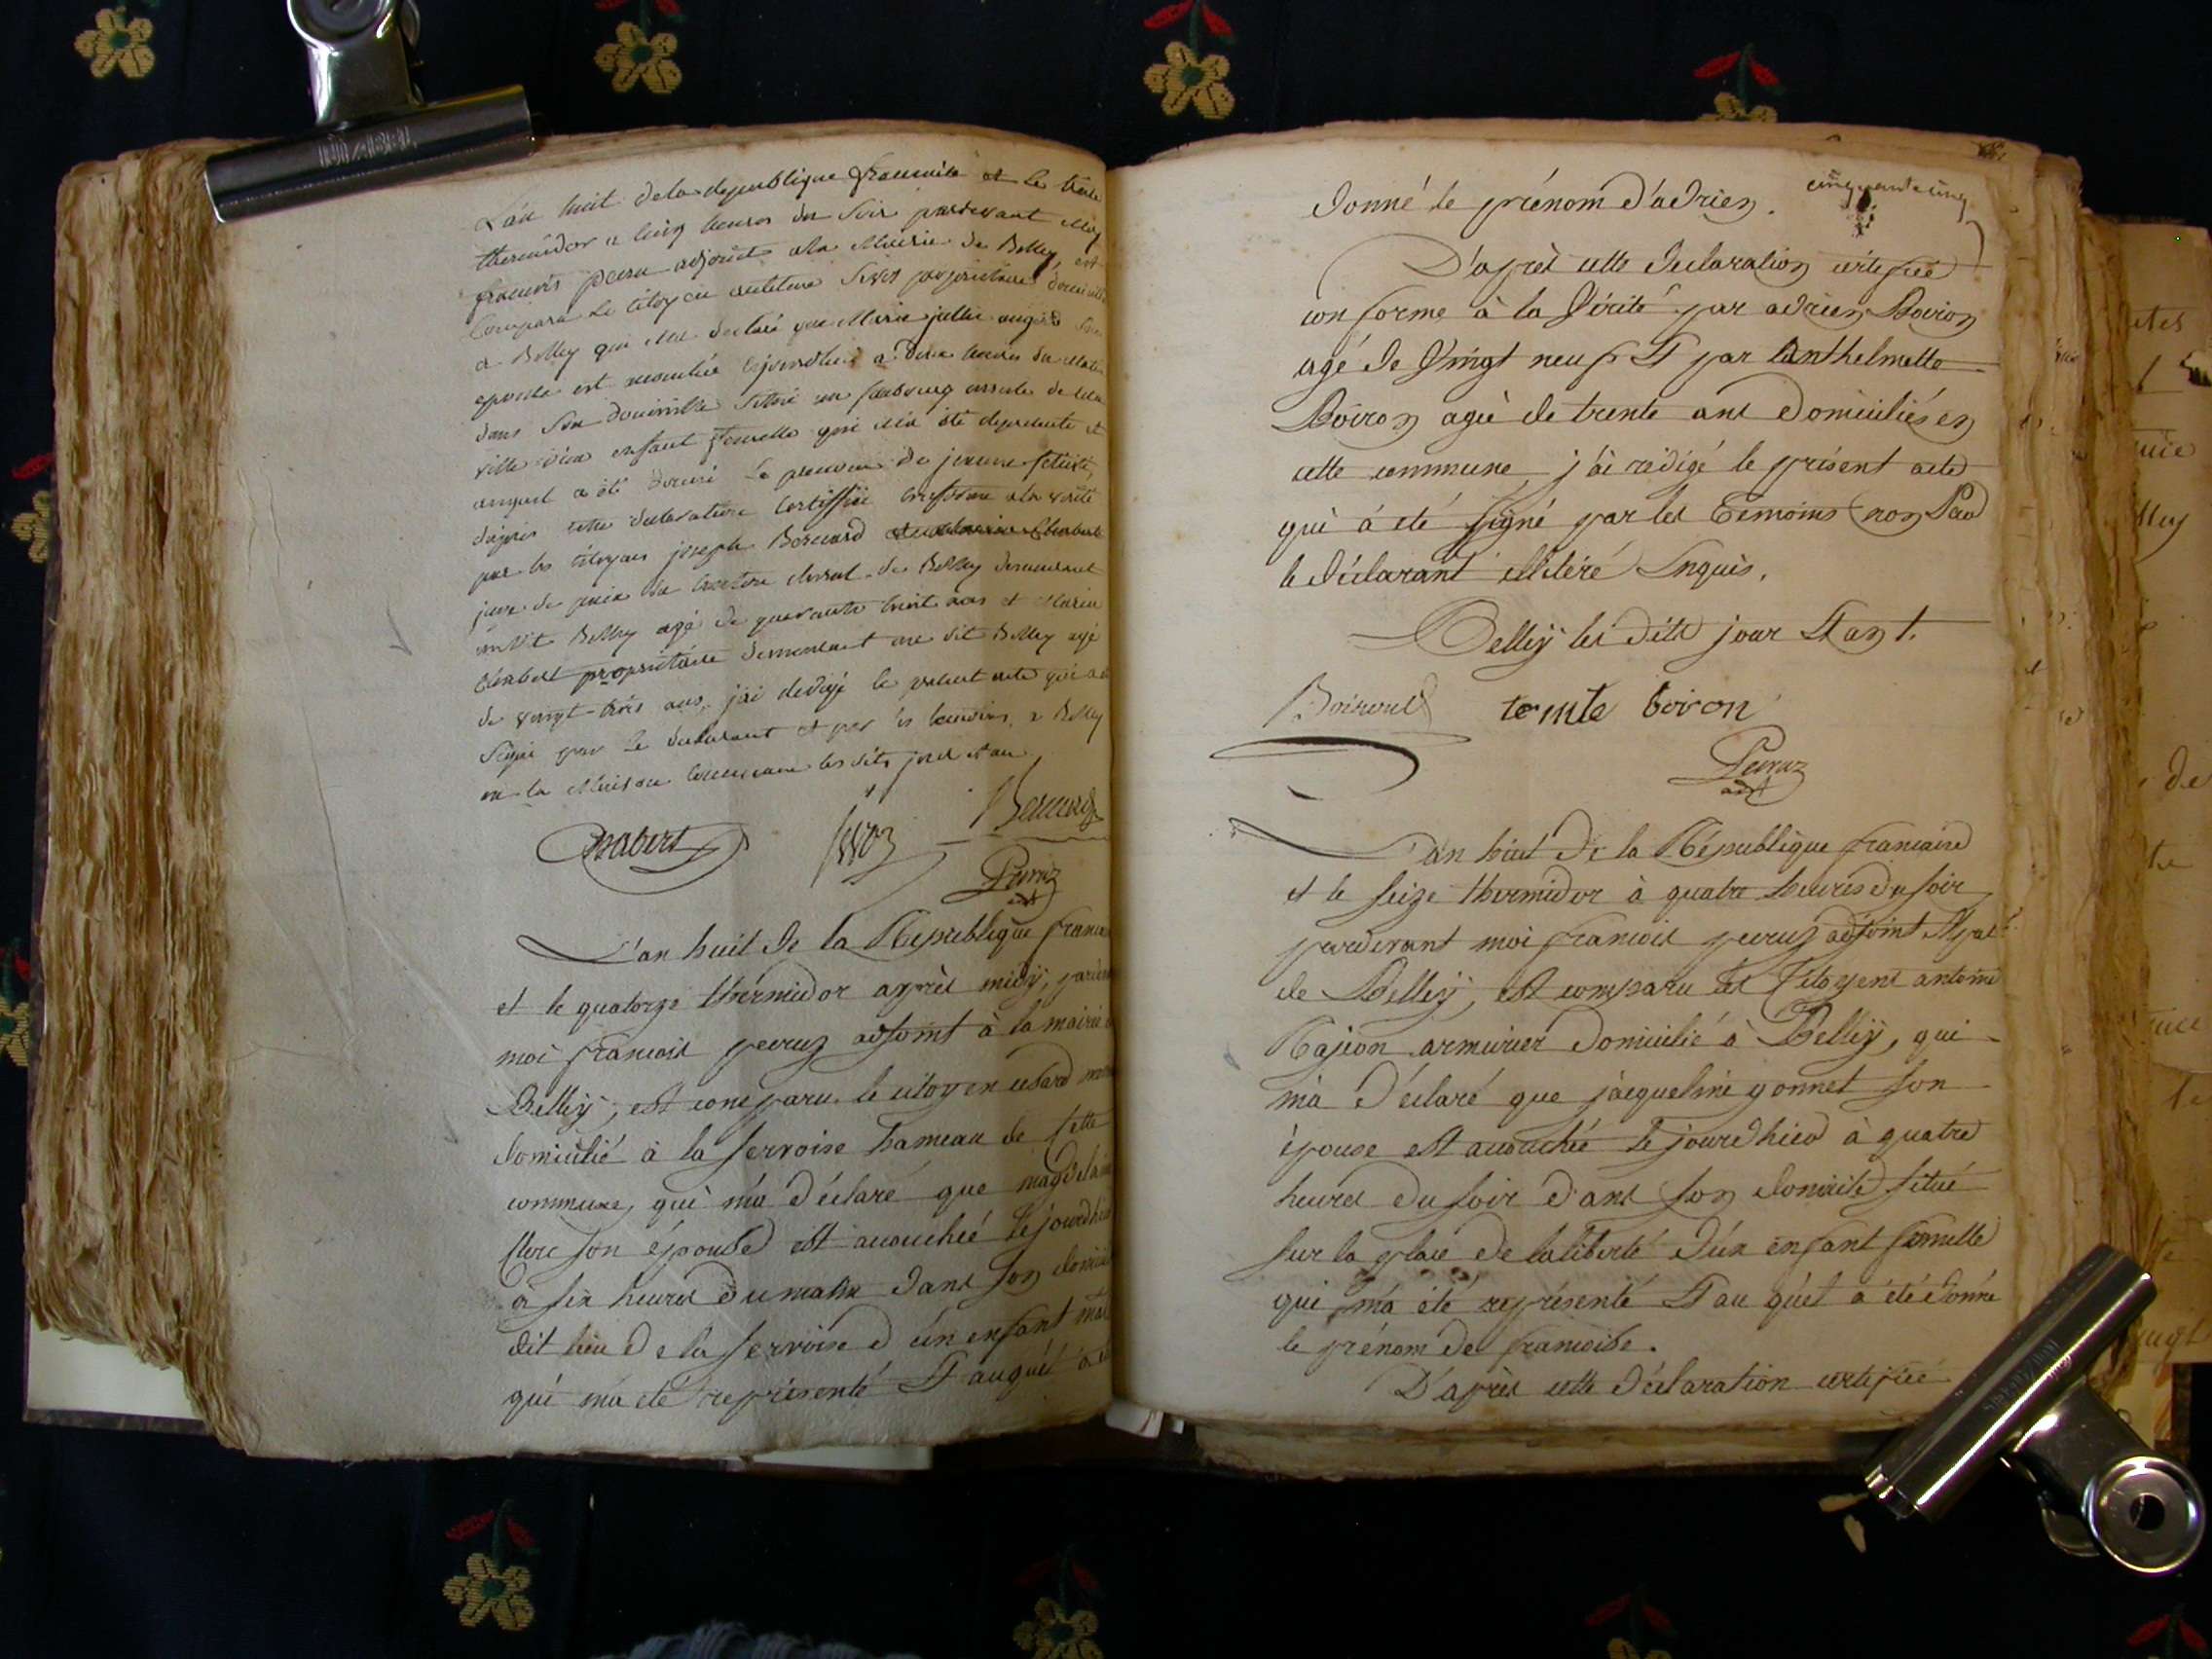 L'an huit de la republique francaise et le treize
thermidor a cinq heures du soir pardevant Moy
francois peruz adjoint a la Mairie de Belley est
Comparu Le citoyen anthelme Sivoz proprietaire domicillié
a Belley qui m'a declaré que Marie julie
epouse est accouchée aujourdhui a deux heures du Matin
dans Son domicille Sittué au faubourg de cette
ville d'un enfant femelle qui m'a été representé et
auquel a été donné le prenom de jeanne
d'après cette declaration Certiffiée Conforme a la verité
par les citoyens joseph Bernard
juge de paix du Canton de Belley demeurant
audit Belley agé de quarante huit ans et Marin
Chabert proprietaire demeurant au dit Belley agé
de vingt-trois ans, j'ai redigé le present acte qui a été
Signé par le declarant et par les temoins, a Belley
en la Maison Commune les dits jour et an
Chabert Sivoz Bernard
Peruz
adjt
L'an huit de la République francaise
et le quatorze thermidor après midÿ, pardevant
moi francois peruz adjoint à la mairie de
Belleÿ, est comparu le citoyen
domicilié à la Servoise hameau de Cette
commune, qui m'a déclaré que magdelaine
Clerc son épouse est accouchée Cejourdhui
à six heures du matin dans son domicile
dit lieu de la Servoise d'un enfant mâle
qui m'a été représenté Et auquel a été
cinquante cinq
donné le prénom d'adrien.
D'après cette declaration certifiée
conforme à la Vérité par adrien Boiron
agé de Vingt neuf Et par Canthelmette
Boiron agée de trente ans domiciliés en
cette commune j'ai rédigé le présent acte
qui à eté signé par les Temoins non Pas
le déclarant illitéré Enquis.
Belleÿ les dits jour Et an.
Boiroud temte boiron
Peruz
adjt
L'an huit de la République francaise
et le Seize thermidor à quatre heures du soir
pardevant moi francois peruz adjoint Mpal
de Belleÿ, est comparu les Citoyens antoine
Rajeon armurier domicilié à Belleÿ, qui
m'à Déclaré que jàcqueline gonnet son
épouse est accouchée Cejourdhieu à quatre
heures du soir dans son domicile situé
sur la place de la liberté d'un enfant femelle
qui m'a été représenté Et au quel a été donné
le prénom de francoise.
D'après cette déclaration certifiée